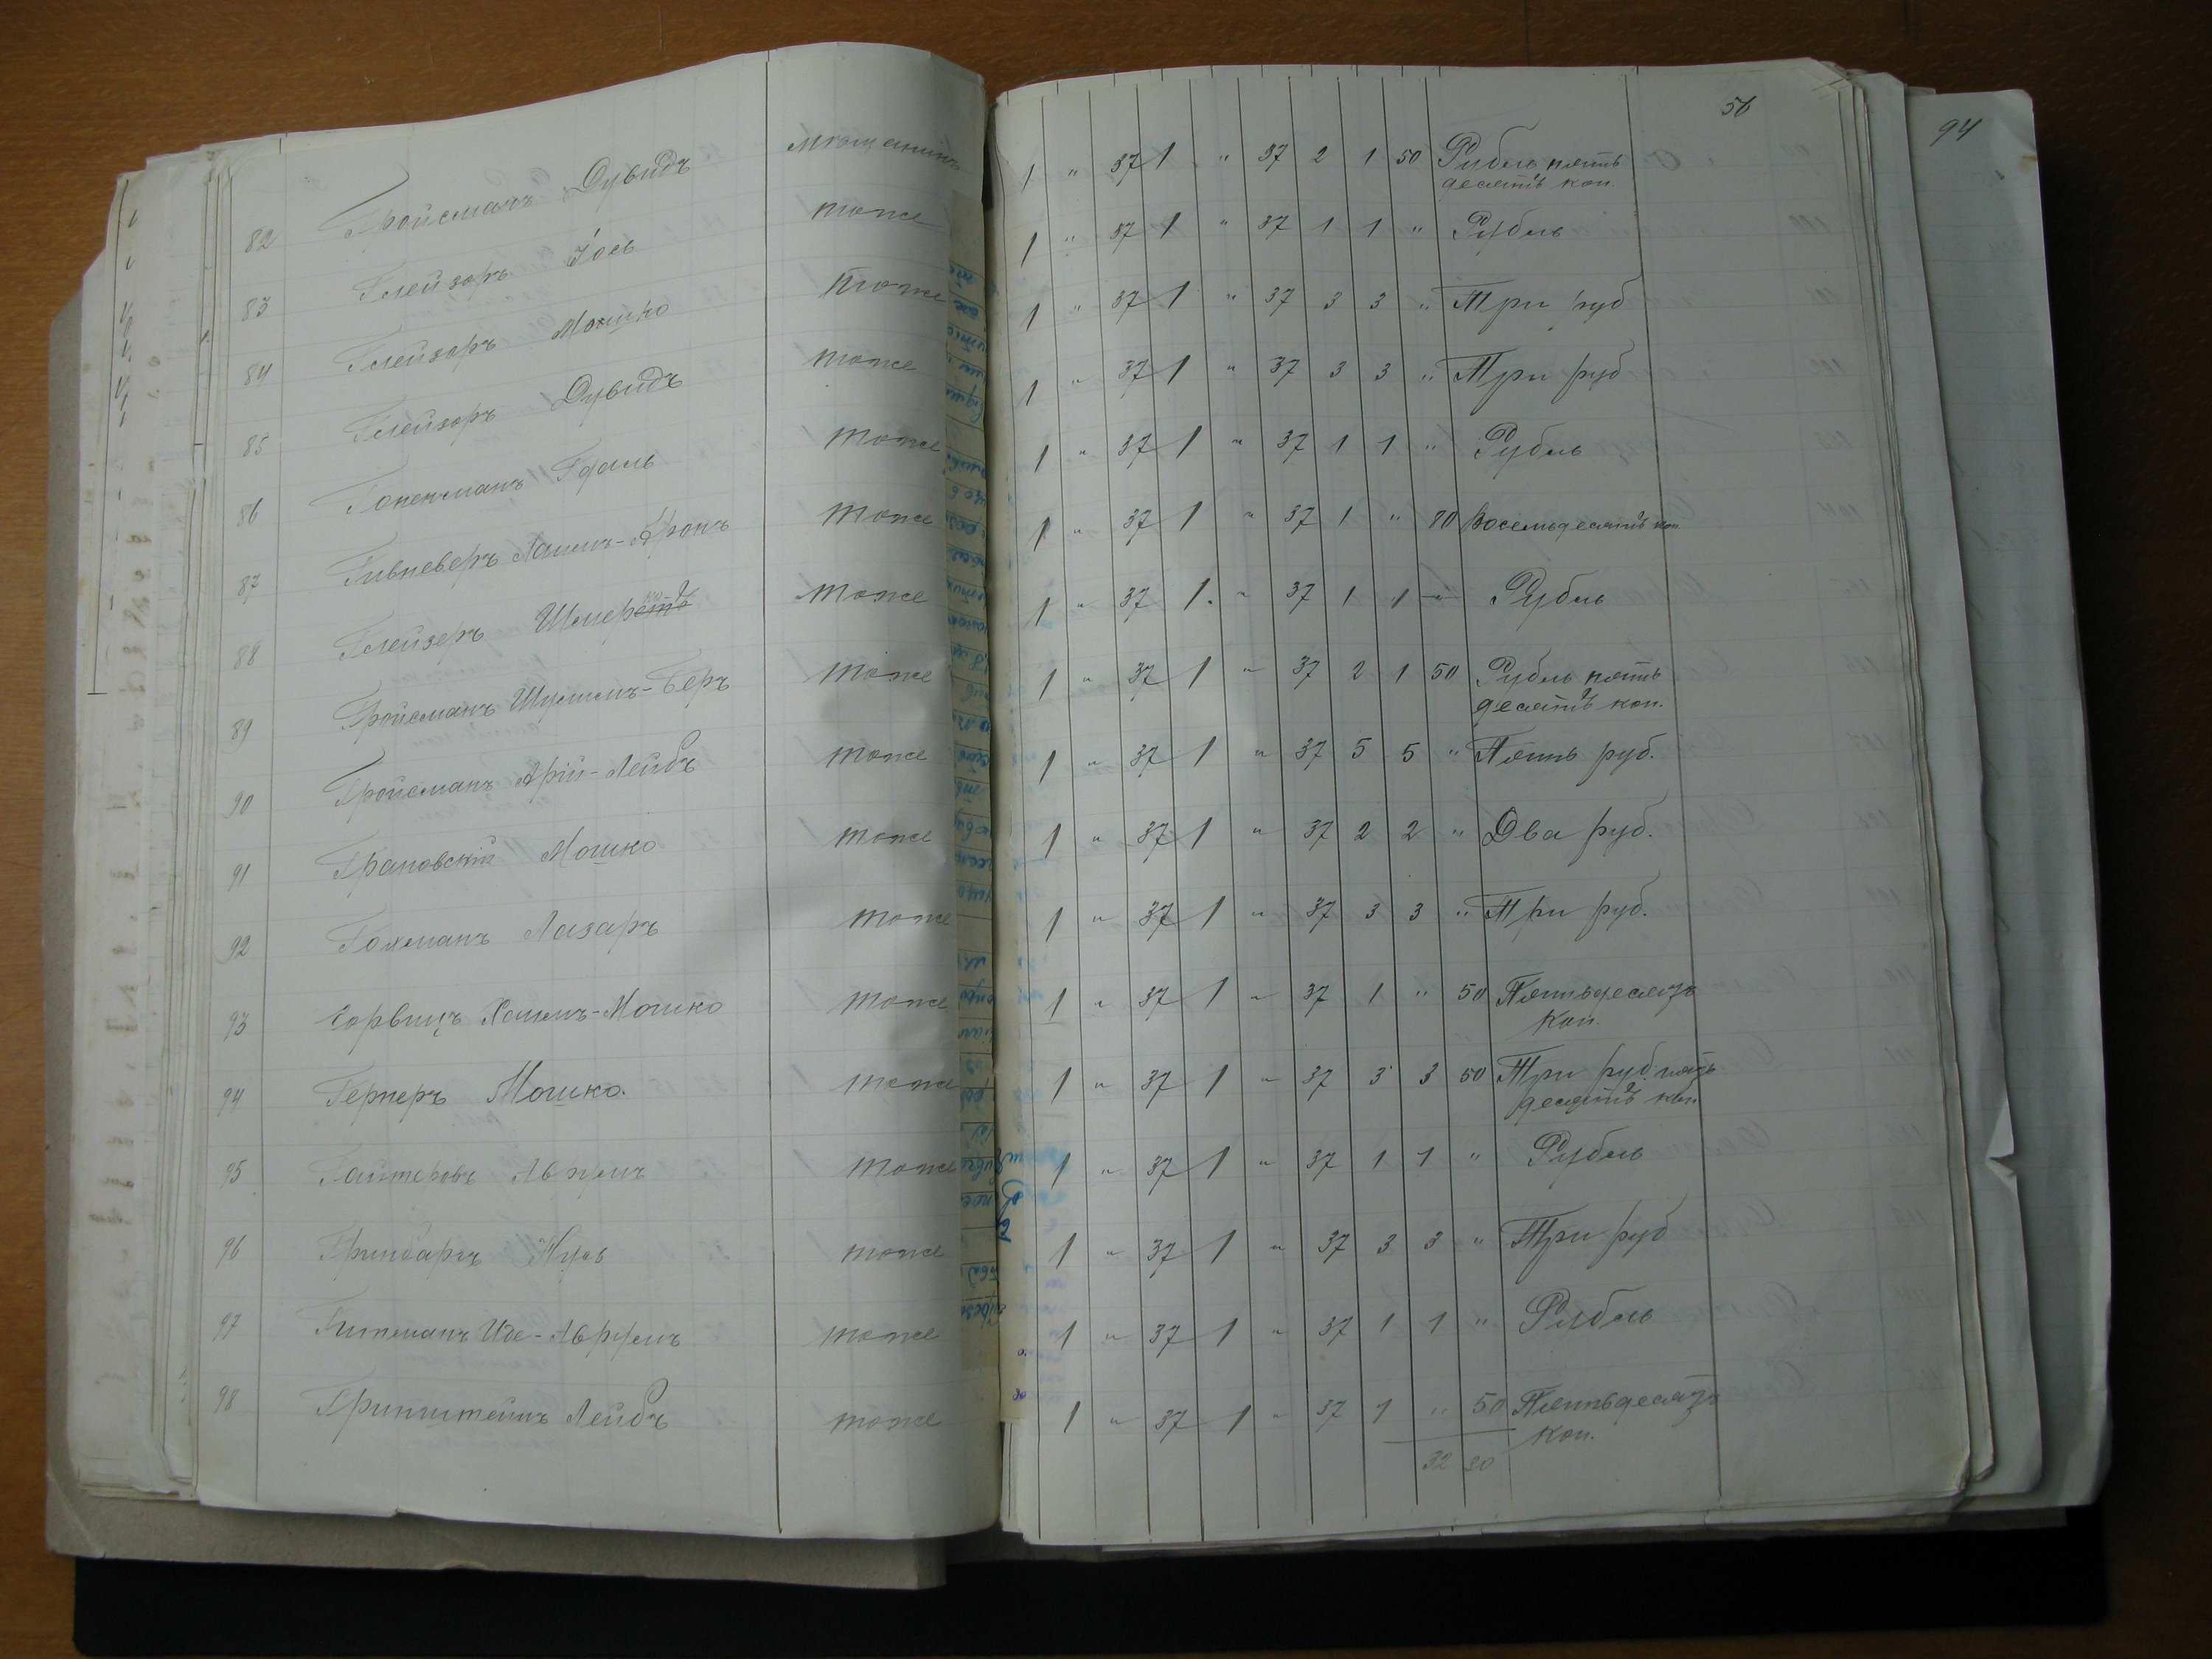 56
94
82 Гройсманъ Дувидъ мѣщанинъ 1 " 37 1 " 37 2 1 50 Рубль пять
десятъ коп.
83 Глейзеръ Іось тоже 1 " 37 1 " 37 1 1 " Рубль
84 Глейзеръ Мошко тоже 1 " 37 1 " 37 3 3 " Три руб
85 Глейзеръ Дувидъ тоже 1 " 37 1 " 37 3 3 " Три руб
86 Гдаль тоже 1 " 37 1 " 37 1 1 " Рубль
87 Хаимъ-Аронъ тоже 1 " 37 1 " 37 1 " 80 Восемьдесятъ коп.
88 Глейзеръ тоже 1 " 37 1 " 37 1 1 " Рубль
89 Гройсманъ Шулимъ-Беръ тоже 1 " 37 1 " 37 2 1 50 Рубль пять
десятъ коп.
90 Гройсманъ Арій-Лейбъ тоже 1 " 37 1 " 37 5 5 " Пять руб.
91 Грановскій Мошко тоже 1 " 37 1 " 37 2 2 " Два руб.
92 Лазаръ тоже 1 " 37 1 " 37 3 3 " Три руб.
93 Горвицъ Хаимъ-Мошко тоже 1 " 37 1 " 37 1 " 50 Пятьдесятъ
коп.
94 Гернеръ Мошко. тоже 1 " 37 1 " 37 3 3 50 Три руб. пять
десятъ коп
95 Аврумъ тоже 1 " 37 1 " 37 1 1 " Рубль
96 Гринбаргъ Нусь тоже 1 " 37 1 " 37 3 3 " Три руб
97 Гительманъ Иде-Аврумъ тоже 1 " 37 1 " 37 1 1 " Рубль
98 Гринштейнъ Лейбъ тоже 1 " 37 1 " 37 1 " 50 Пятьдесятъ
коп.
32 30